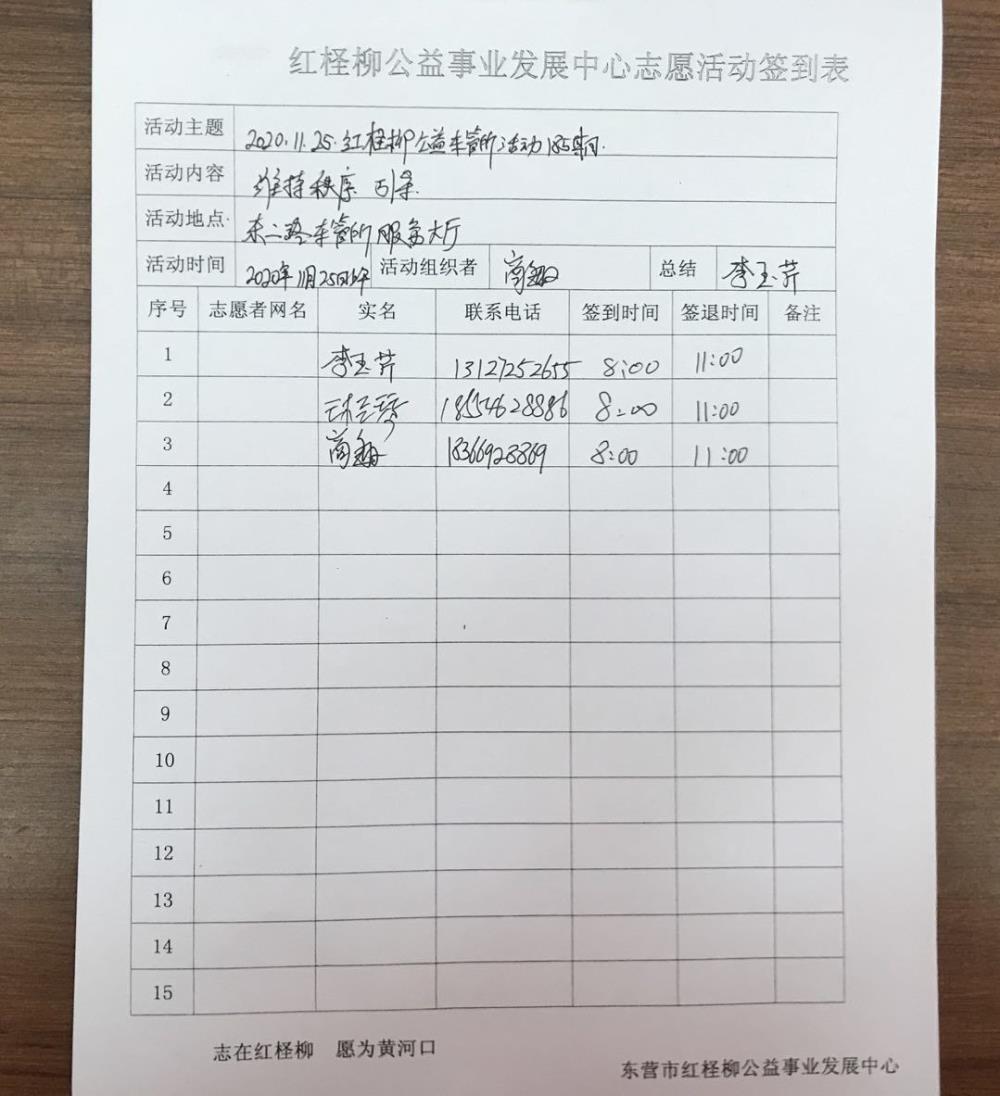 红柽柳公益事业发展中心志愿活动签到表
活动主题 2020.11.25.红柽柳公益车管所活动185期.
活动内容 维持秩序 引导.
活动地点 东二路车管所服务大厅
活动时间 2020年11月25日上午 活动组织者 商 总结 李玉芹
序号 志愿者网名 实名 联系电话 签到时间 签退时间 备注
1 李玉芹 13127252655 8:00 11:00
2 18554628886 8:00 11:00
3 商 18366928869 8:00 11:00
4
5
6
7
8
9
10
11
12
13
14
15
志在红柽柳 愿为黄河口
东营市红柽柳公益事业发展中心